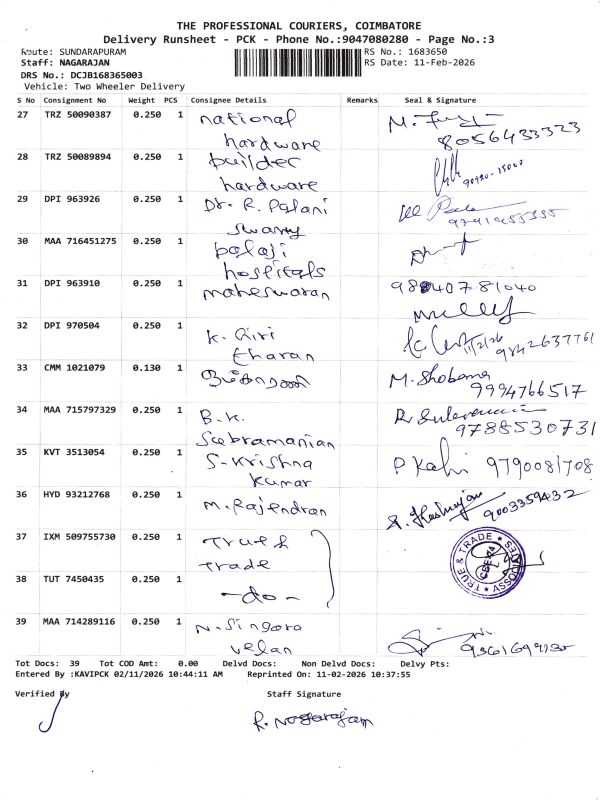 THE PROFESSIONAL COURIERS, COIMBATORE
Delivery Runsheet - PCK - Phone No.:9047080280 - Page No.:3
Route: SUNDARAPURAM
RS No.: 1683650
Staff: NAGARAJAN
RS Date: 11-Feb-2026
DRS No.: DCJB168365003
Vehicle: Two Wheeler Delivery
S No Consignment No Weight PCS Consignee Details Remarks Seal & Signature
27 TRZ 50090387 0.250 1 national
hardware 8056433323
28 TRZ 50089894 0.250 1 builder
hardware
29 DPI 963926 0.250 1 Dr. R. Palani
Swamy
30 MAA 716451275 0.250 1 balaji
hospitals
31 DPI 963910 0.250 1 maheswaran
32 DPI 970504 0.250 1 K. Giri
tharan 11/2/26 9842637761
33 CMM 1021079 0.130 1 M. Shobana
9994766517
34 MAA 715797329 0.250 1 B.K.
Subramanian 9788530731
35 KVT 3513054 0.250 1 S. Krishna
Kumar P. Kali 9790081708
36 HYD 93212768 0.250 1 M. Rajendran 9003359432
37 IXM 509755730 0.250 1 True &
Trade
TRUE & TRADE ASSOCIATES
CBE-24
38 TUT 7450435 0.250 1 -do-
39 MAA 714289116 0.250 1 N. Singara
velan
Tot Docs: 39 Tot COD Amt: 0.00 Delvd Docs: Non Delvd Docs: Delvy Pts:
Entered By :KAVIPCK 02/11/2026 10:44:11 AM Reprinted On: 11-02-2026 10:37:55
Verified By Staff Signature
R. Nagarajan